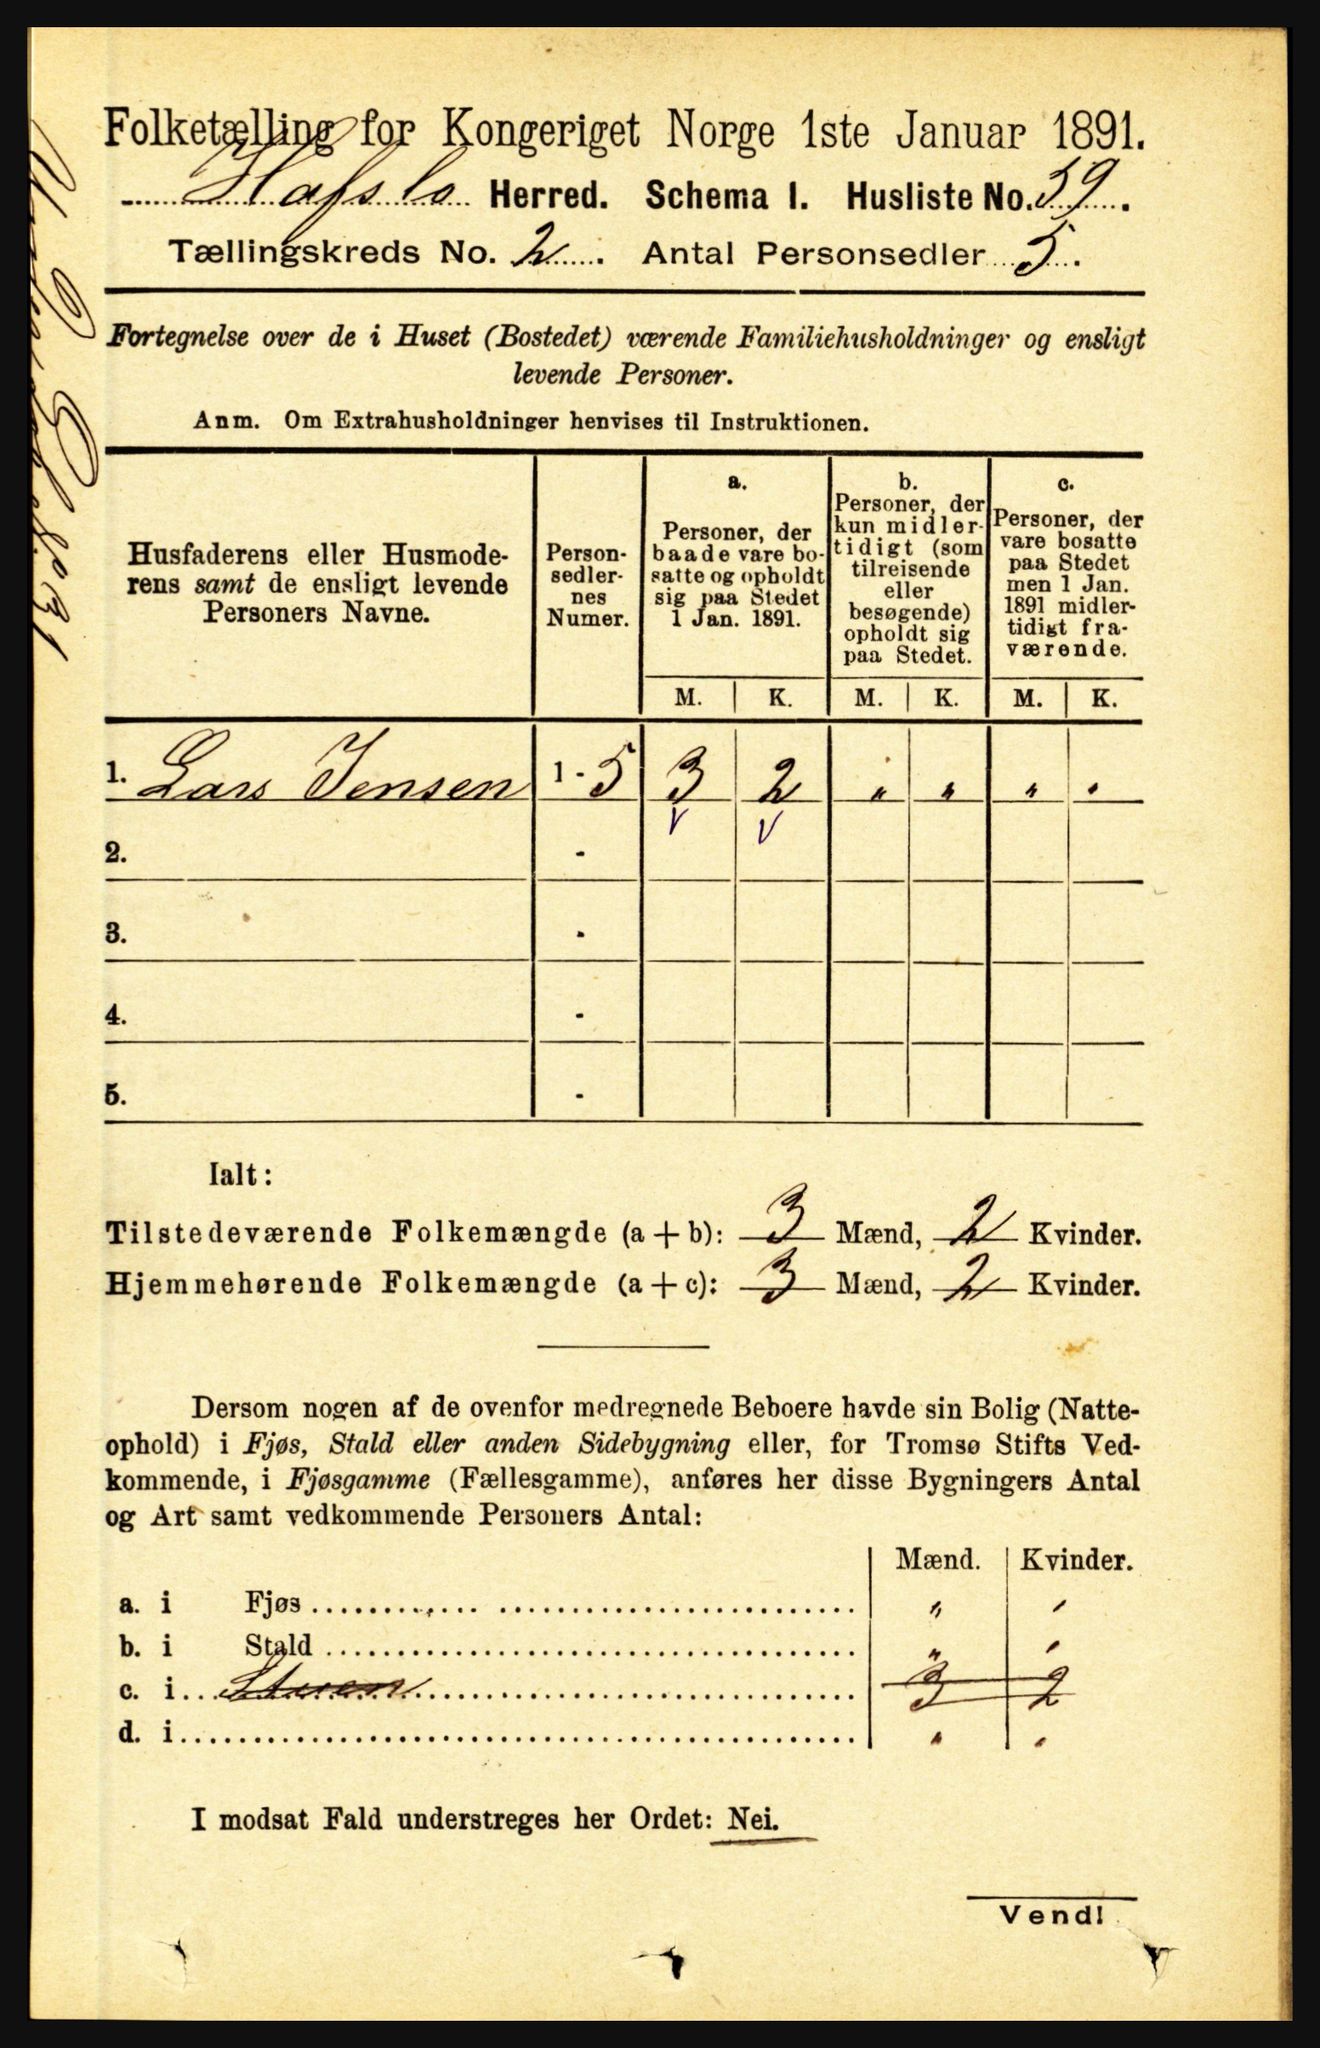 Folketælling for Kongeriget Norge 1ste Januar 1891.
Hafslo Herred. Schema I. Husliste No. 39.
Tællingskreds No. 2. Antal Personsedler 5.
Fortegnelse over de i Huset (Bostedet) værende Familiehusholdninger og ensligt
levende Personer.
Anm. Om Extrahusholdninger henvises til Instruktionen.
Husfaderens eller Husmode-
rens samt de ensligt levende
Personers Navne.
Person-
sedler-
nes
Numer.
a.
Personer, der
baade vare bo-
satte og opholdt
sig paa Stedet
1 Jan. 1891.
b.
Personer, der
kun midler-
tidigt (som
tilreisende
eller
besøgende)
opholdt sig
paa Stedet.
c.
Personer, der
vare bosatte
paa Stedet
men 1 Jan.
1891 midler-
tidigt fra-
værende.
M. K. M. K. M. K.
1. Lars Jensen 1 - 5 3 2 " " " "
2. -
3. -
4. -
5. -
Ialt:
Tilstedeværende Folkemængde (a + b): 3 Mænd, 2 Kvinder.
Hjemmehørende Folkemængde (a + c): 3 Mænd, 2 Kvinder.
Dersom nogen af de ovenfor medregnede Beboere havde sin Bolig (Natte-
ophold) i Fjøs, Stald eller anden Sidebygning eller, for Tromsø Stifts Ved-
kommende, i Fjøsgamme (Fællesgamme), anføres her disse Bygningers Antal
og Art samt vedkommende Personers Antal:
Mænd. Kvinder.
a. i Fjøs " "
b. i Stald " "
c. i 3 2
d. i " "
I modsat Fald understreges her Ordet: Nei.
Vend!